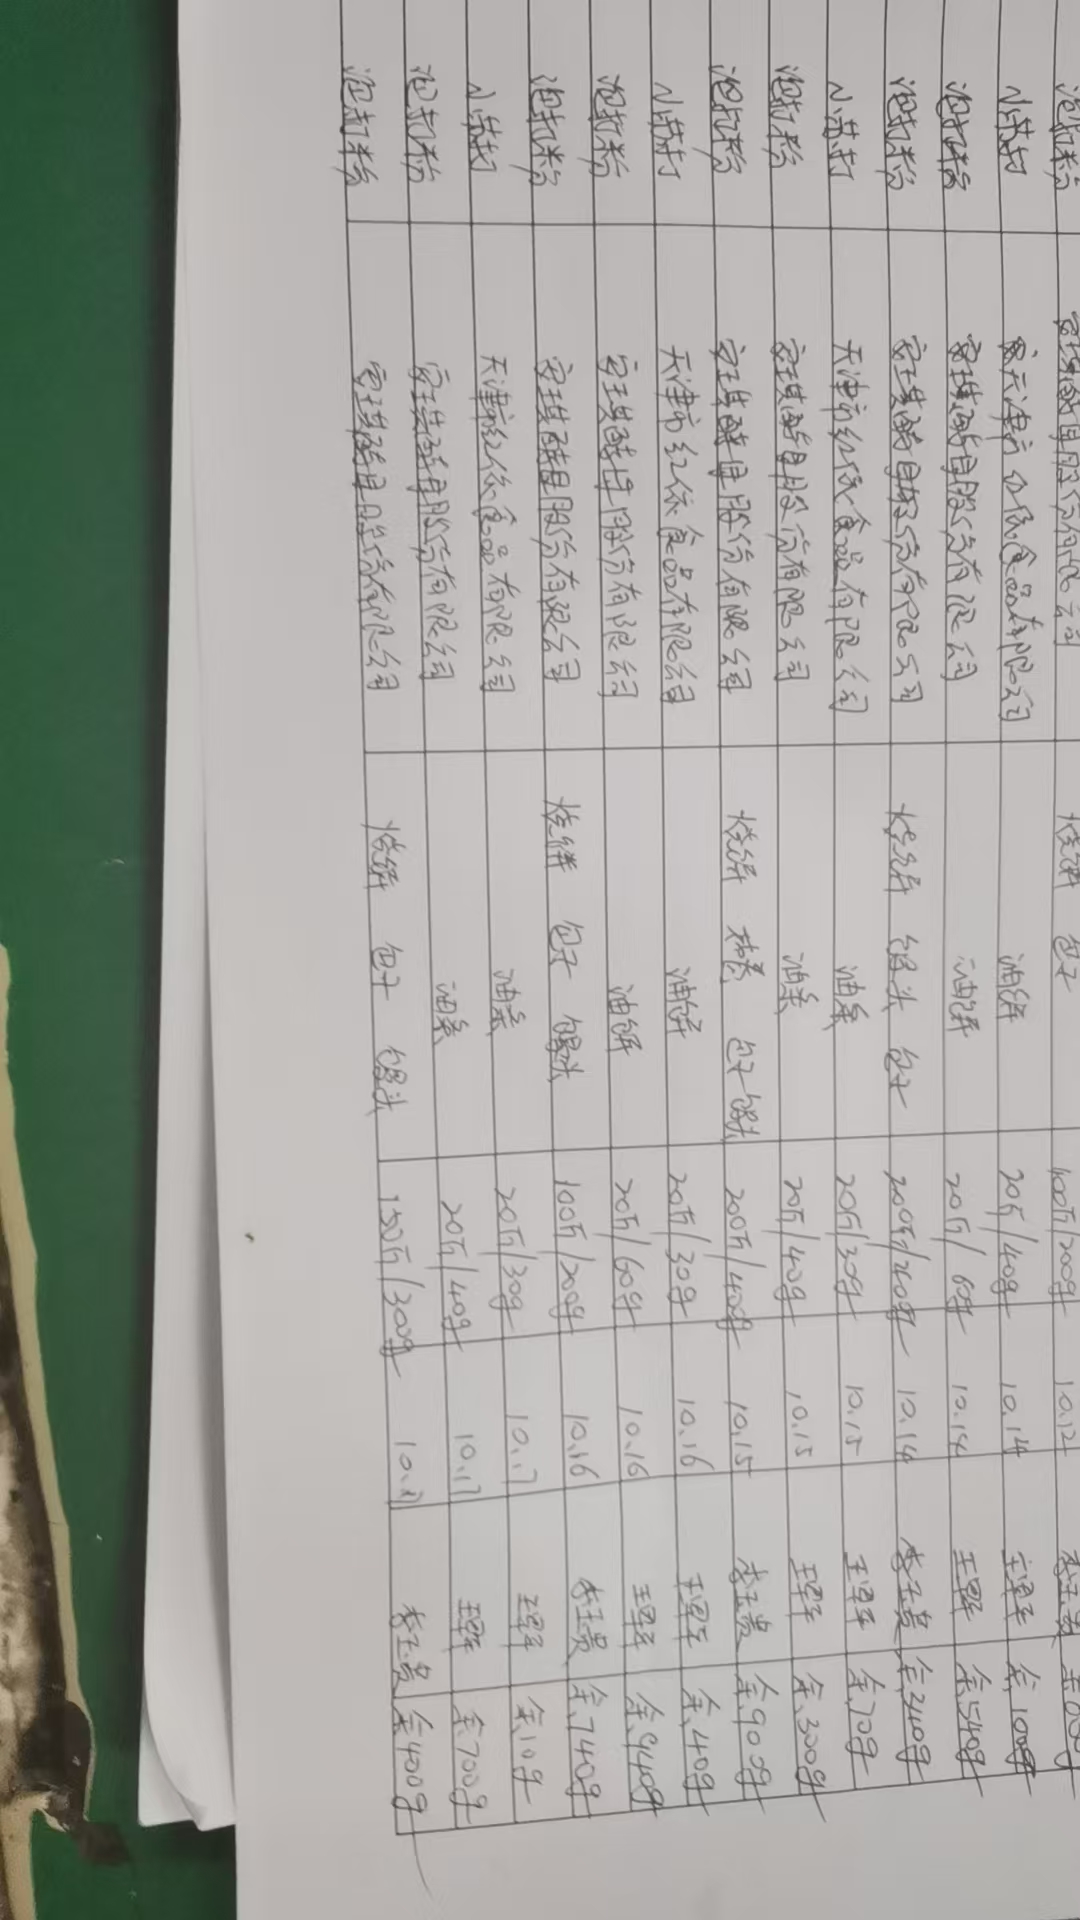 泡打粉 安琪酵母股份有限公司 烧饼 包子 100斤/200g 10.12
小苏打 天津市红依食品有限公司 油饼 20斤/40g 10.14 王翠平 余100g
泡打粉 安琪酵母股份有限公司 油饼 20斤/60g 10.14 王翠平 余540g
泡打粉 安琪酵母股份有限公司 烧饼 馒头 包子 200斤/240g 10.14 李玉景 余240g
小苏打 天津市红依食品有限公司 油条 20斤/30g 10.15 王翠平 余70g
泡打粉 安琪酵母股份有限公司 油条 20斤/40g 10.15 王翠平 余300g
泡打粉 安琪酵母股份有限公司 烧饼 包子 馒头 200斤/400g 10.15 李玉景 余900g
小苏打 天津市红依食品有限公司 油饼 20斤/30g 10.16 王翠平 余40g
泡打粉 安琪酵母股份有限公司 油饼 20斤/60g 10.16 王翠平 余940g
泡打粉 安琪酵母股份有限公司 烧饼 包子 馒头 100斤/200g 10.16 李玉景 余740g
小苏打 天津市红依食品有限公司 油条 20斤/30g 10.17 王翠平 余10g
泡打粉 安琪酵母股份有限公司 油条 20斤/40g 10.17 王翠平 余700g
泡打粉 安琪酵母股份有限公司 烧饼 包子 馒头 150斤/300g 10.17 李玉景 余400g